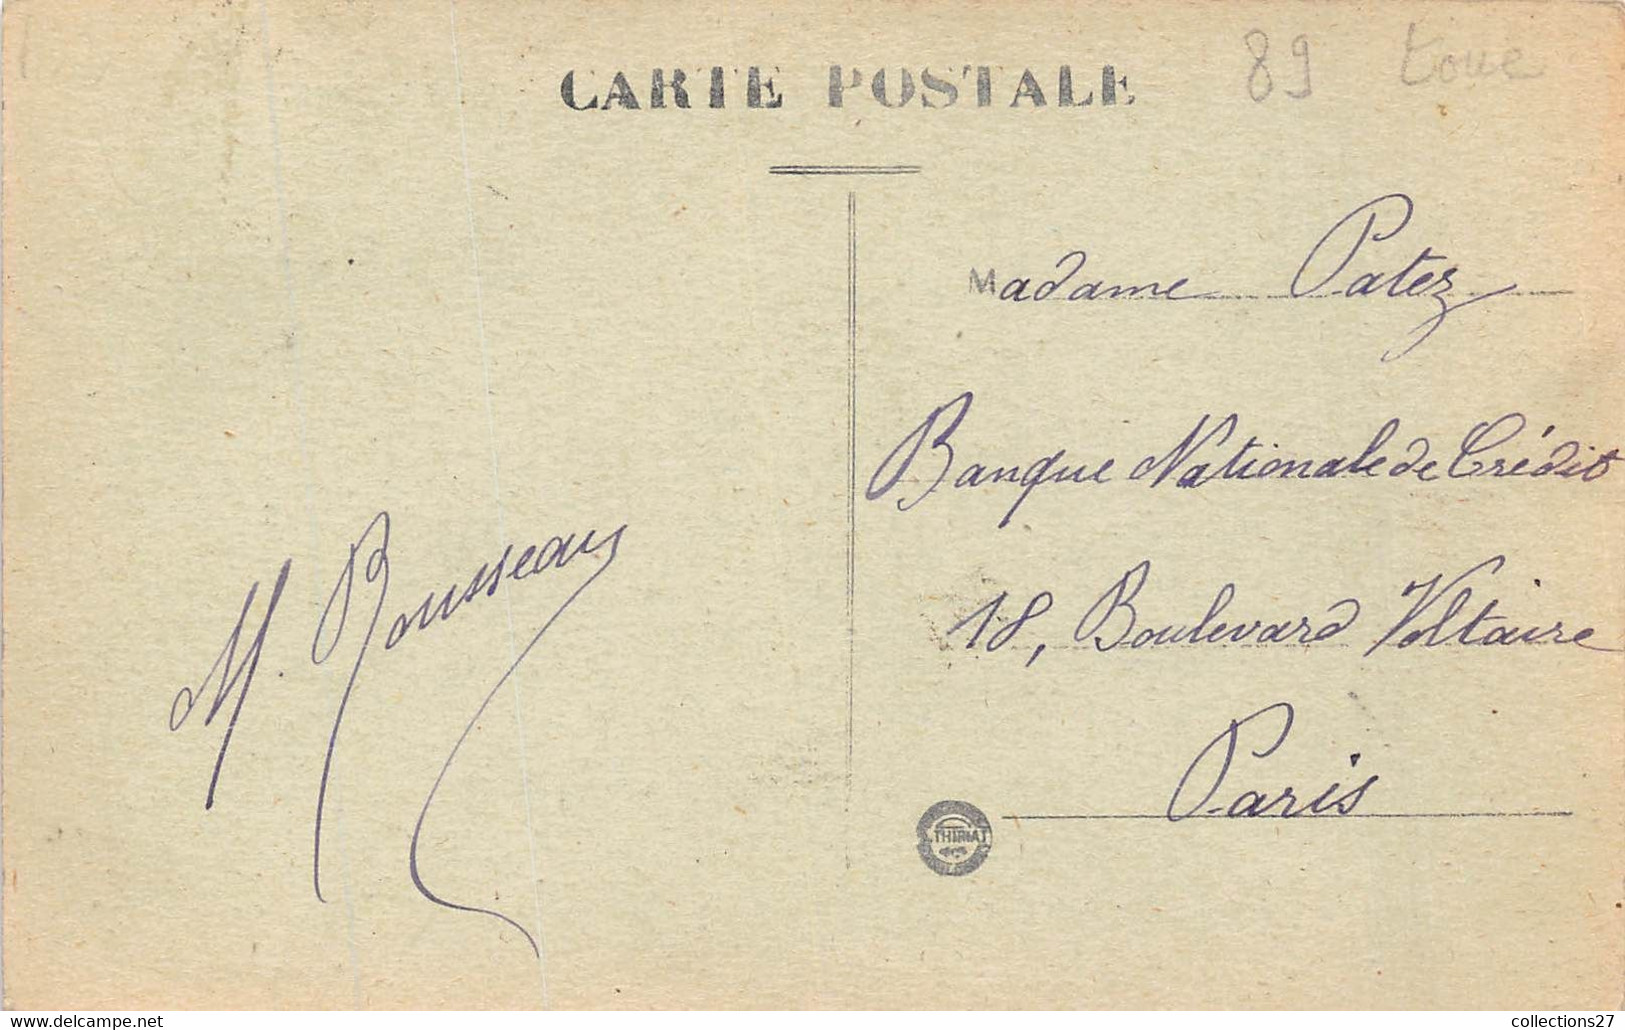 89 toue
CARTE POSTALE
Madame Patez
Banque Nationale de Crédit
18, Boulevard Voltaire
Paris
M. Rousseau
THIRIAT
www.delcampe.net
collections27